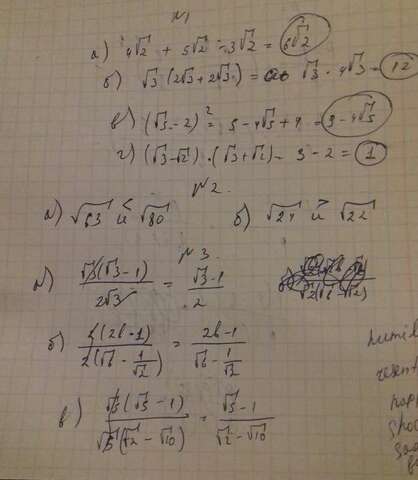 №1
а) 4√2 + 5√2 - 3√2 = 6√2
б) √3 (2√3 + 2√3) = √3 · 4√3 = 12
в) (√5 - 2)² = 5 - 4√5 + 4 = 9 - 4√5
г) (√3 - √2) · (√3 + √2) - 3 - 2 = 1
№2.
а) √63 и < √80 б) √24 и > √22
№3.
а) √3(√3-1) / 2√3 = √3-1 / 2
б) 2(2b-1) / 2(√b - 1/√2) = 2b-1 / √b - 1/√2
в) √5(√5-1) / √5(√2-√10) = √5-1 / √2-√10